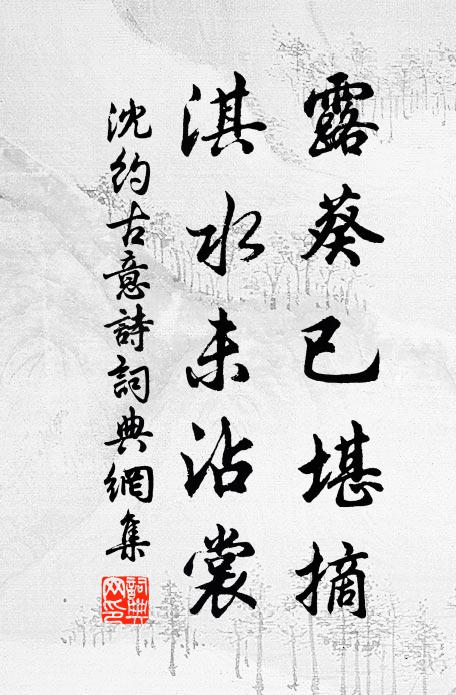 露葵已堪摘
淇水未沾裳
沈約古意詩詞典網集
詞典網印